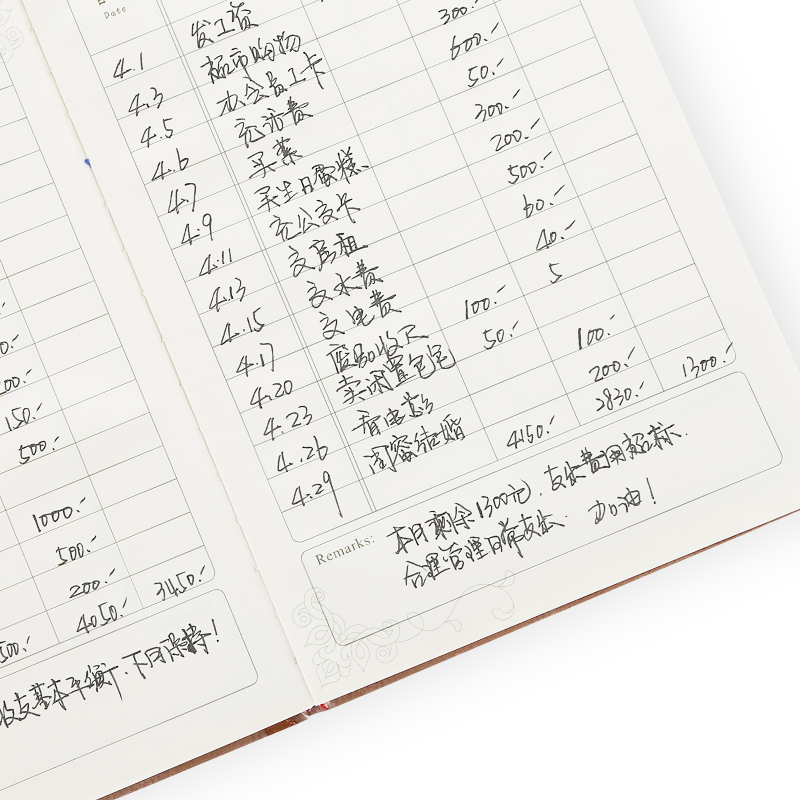 Date
4.1 发工资
4.3 超市购物 300.-
4.5 办会员卡 600.-
4.6 充话费 50.-
4.7 买菜 300.-
4.9 买生日蛋糕 200.-
4.11 充公交卡 500.-
4.13 交房租 60.-
4.15 交水费 40.-
4.17 交电费 5
4.20 100.-
4.23 卖闲置包包 50.-
4.26 看电影 100.-
4.29 闺蜜结婚 200.-
4150.- 2830.- 1300.-
Remarks: 本月剩余1300元, 支出费用超标.
合理管理日常支出. 加油!
150.-
500.-
1000.-
500.-
200.-
500.- 4050.- 3450.-
收支基本平衡. 下月保持!